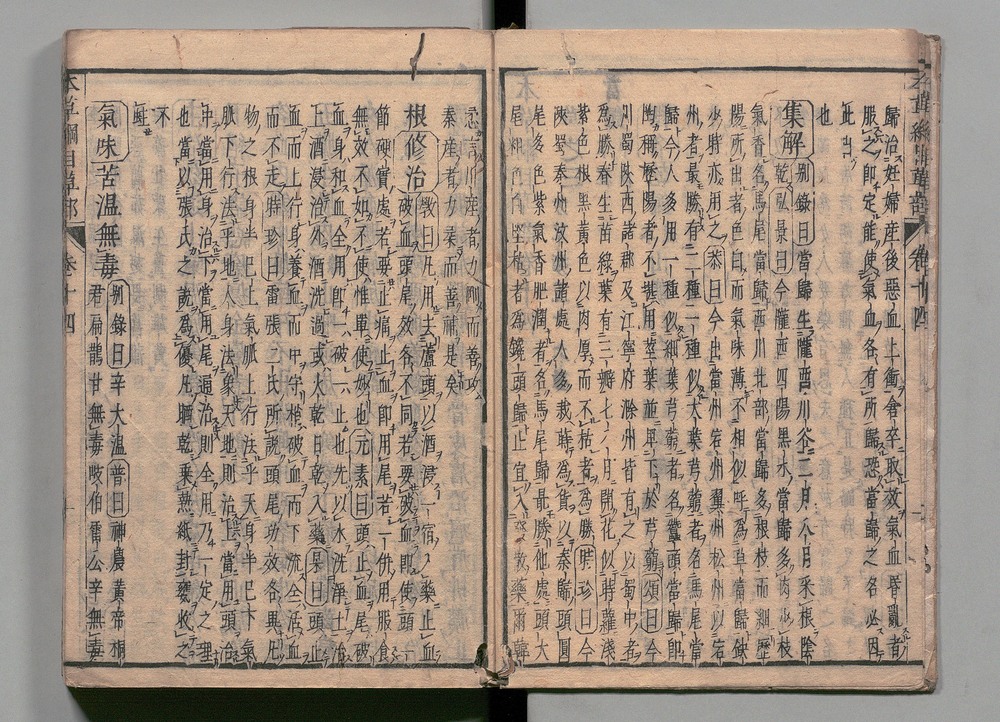 歸治妊婦産後惡血上衝倉卒取效氣血昏亂者
服之即定能使氣血各有所歸恐當歸之名必因
此出
也
集解別録曰當歸生隴西川谷二月八月采根陰
乾弘景曰今隴西四陽黑水當歸多肉少枝
氣香名馬尾當歸西川北部當歸多根枝而細歷
陽所出者色白而氣味薄不相似呼爲草當歸缺
少時亦用之恭曰今出當州宕州翼州松州以宕
州者最勝有二種一種似大葉芎藭者名馬尾當
歸今人多用一種似細葉芎藭者名蠶頭當歸即
陶稱歷陽者不堪用莖葉並卑下於芎藭頌曰今
川蜀陝西諸郡及江寧府滁州皆有之以蜀中者
爲勝春生苗緑葉有三瓣七八月開花似蒔蘿淺
紫色根黑黄色以肉厚而不枯者爲勝時珍曰今
陝蜀秦州汶州諸處人多栽蒔爲貨以秦歸頭圓
尾多色紫氣香肥潤者名馬尾歸最勝他處頭大
尾粗色白堅枯者爲鑱頭歸止宜入發散藥爾韓
𢘆言川産者力剛而善攻
秦産者力柔而善補是矣
根修治斅曰凡用去蘆頭以酒浸一宿入藥止血
破血頭尾效各不同若要破血即使頭一
節硬實處若要止痛止血即用尾若一併用服食
無效不如不使惟單使妙也元素曰頭止血尾破
血身和血全用即一破一止也先以水洗淨土治
上酒浸治外酒洗過或火乾日乾入藥杲曰頭止
血而上行身養血而中守梢破血而下流全活血
而不走時珍曰雷張二氏所説頭尾功效各異凡
物之根身半已上氣脈上行法乎天身半已下氣
脈下行法乎地人身法象天地則治上當用頭治
中當用身治下當用尾通治則全用乃一定之理
也當以張氏之説爲優凡晒乾乘熱紙封甕收之
不
蛀
氣味苦溫無毒別録曰辛大溫普曰神農黄帝桐
君扁鵲甘無毒岐伯雷公辛無毒